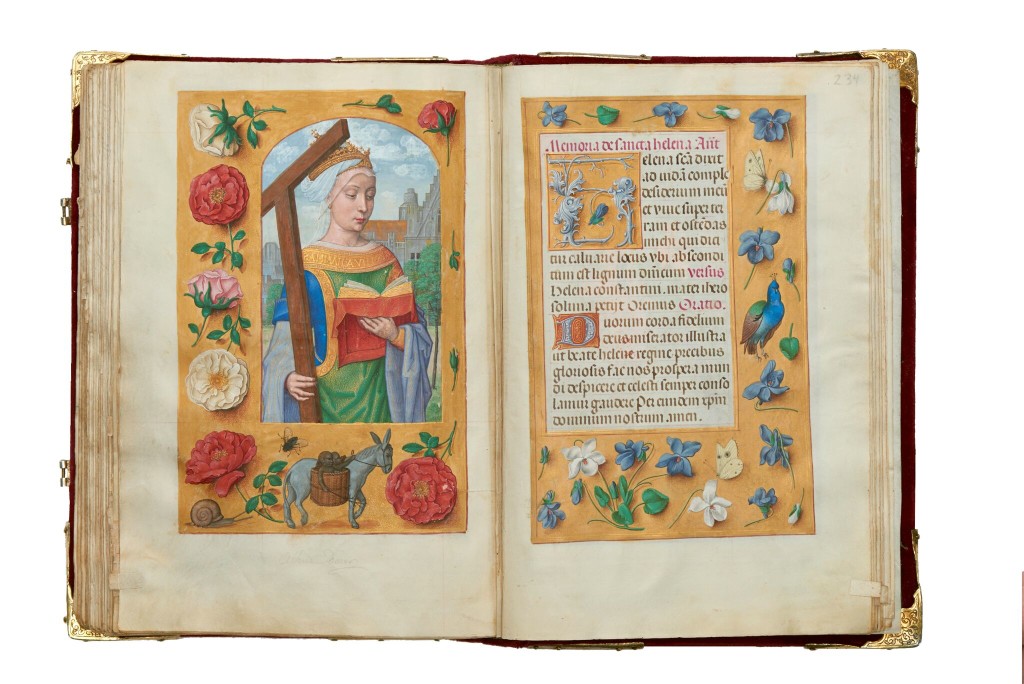 234
Memoria de sancta helena Añt
Helena scã dixit
ad iudã comple
desiderium meũ
et viue super ter
ram et ostẽdas
michi qui dici
tur caluarie locus vbi abscondi
tum est lignum dñicum versus
Helena constantini mater ihero
solima petiit Oremus Oratio.
Duorum corda fidelium
deus miserator illustra
ut beate helene regine precibus
gloriosis fac nos prospera mun
di despicere et celesti semper conso
lamur gaudere Per eundem xp̃m
dominum nostrum amen.